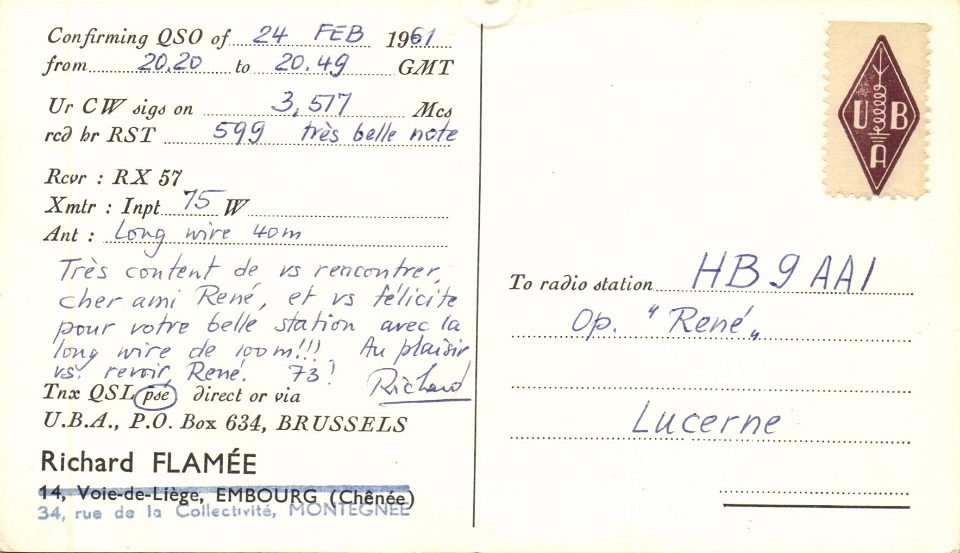 Confirming QSO of 24 FEB 1961
from 20.20 to 20.49 GMT
Ur CW sigs on 3,517 Mcs
rcd hr RST 599 très belle note
Rcvr : RX 57
Xmtr : Inpt 75 W
Ant : Long wire 40m
Très content de vs rencontrer,
cher ami René, et vs félicite
pour votre belle station avec la
long wire de 100m!!! Au plaisir
vs. revoir, René. 73! Richard
Tnx QSL pse direct or via
U.B.A., P.O. Box 634, BRUSSELS
Richard FLAMÉE
14, Voie-de-Liège, EMBOURG (Chênée)
34, rue de la Collectivité, MONTEGNÉE
U B
A
To radio station HB9AAI
Op. "René"
Lucerne